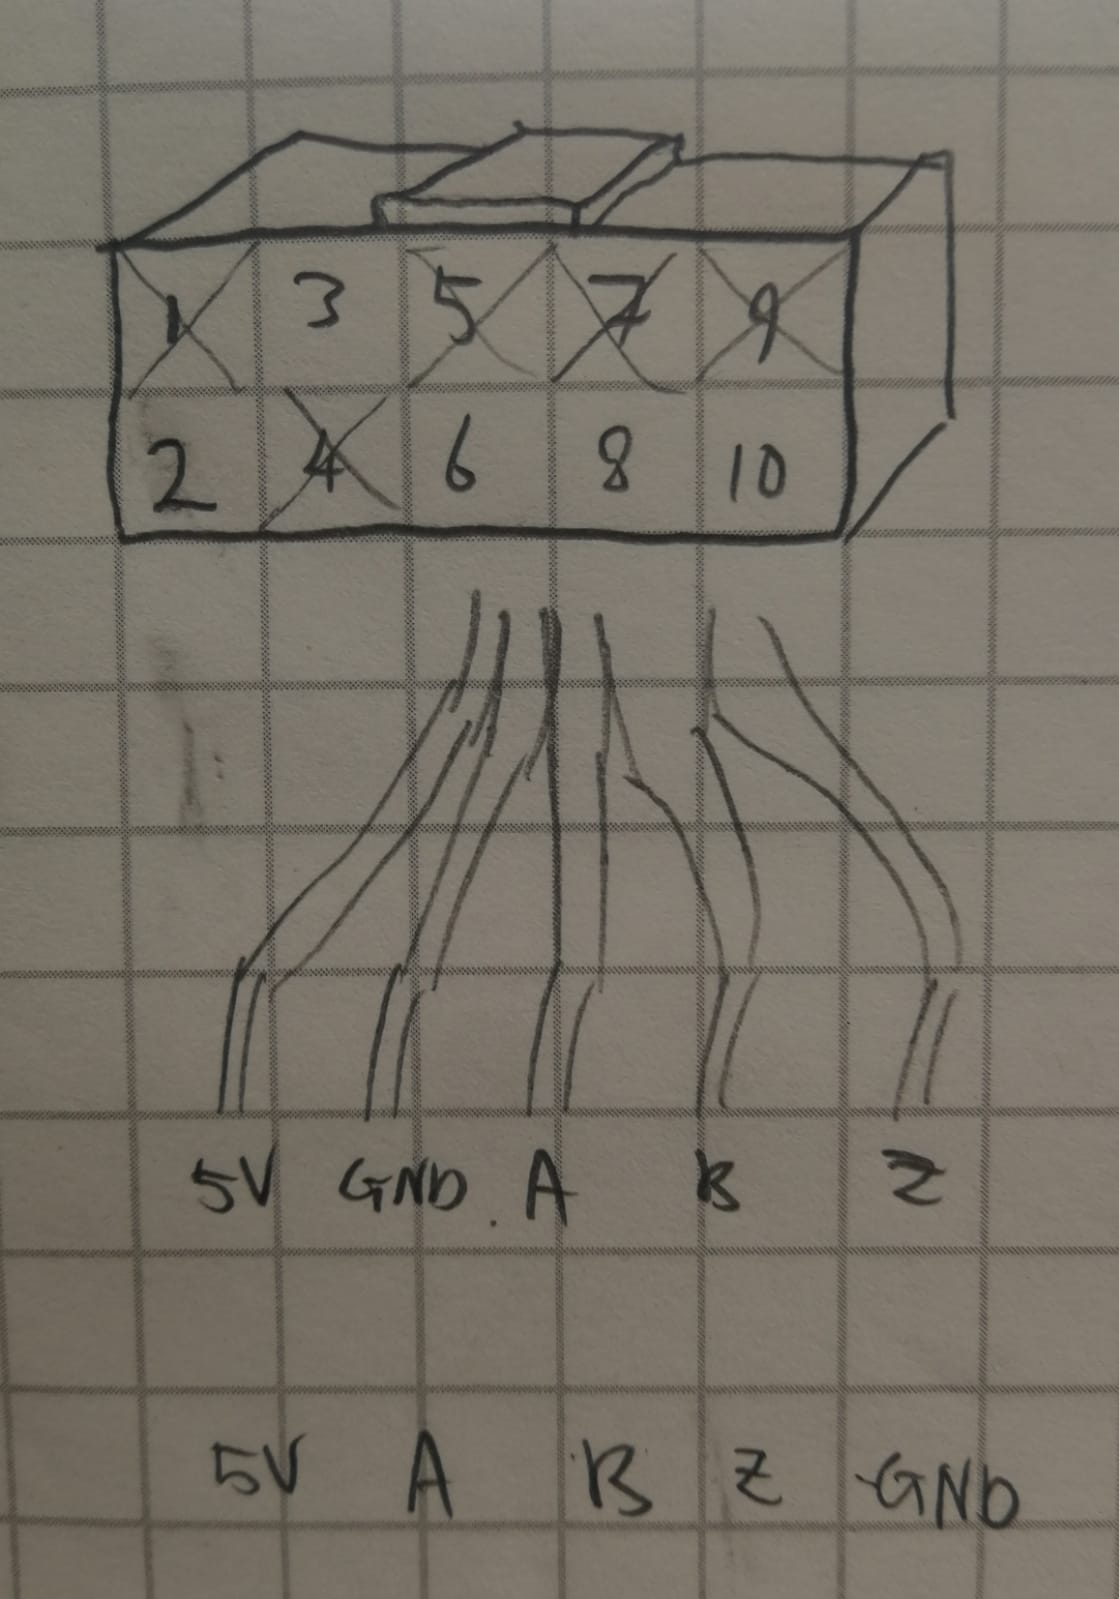 1 3 5 7 9
2 4 6 8 10
5V GND A B Z
5V A B Z GND